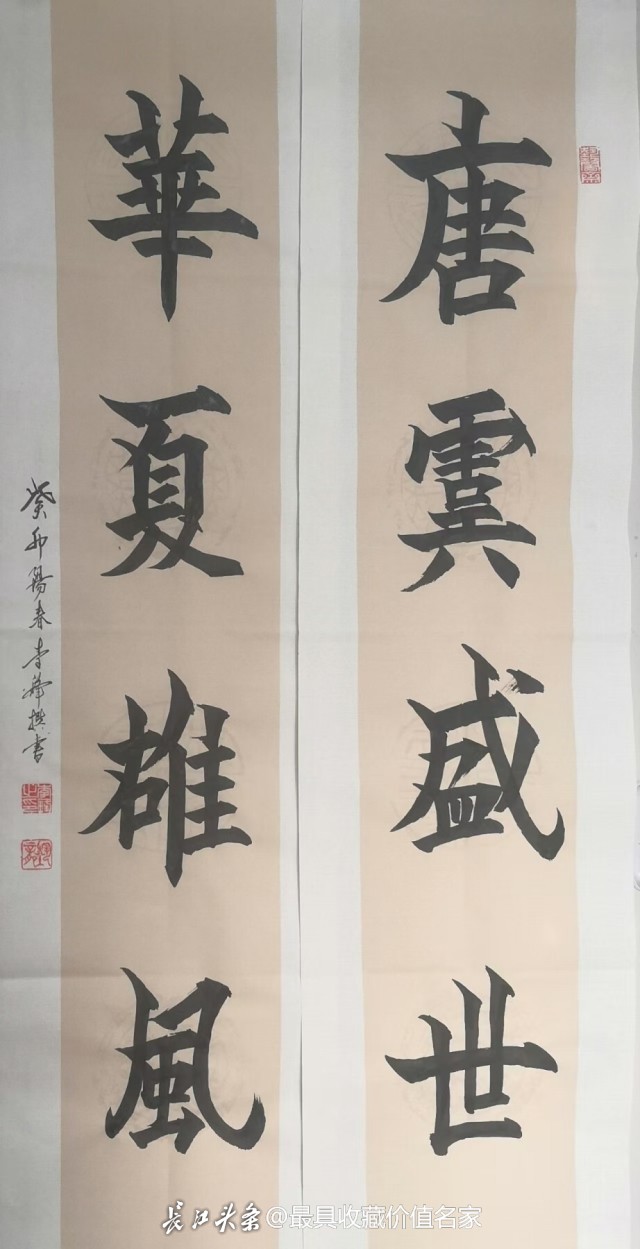 唐虞盛世
華夏雄風
癸卯陽春李峰撰書
长江头条@最具收藏价值名家